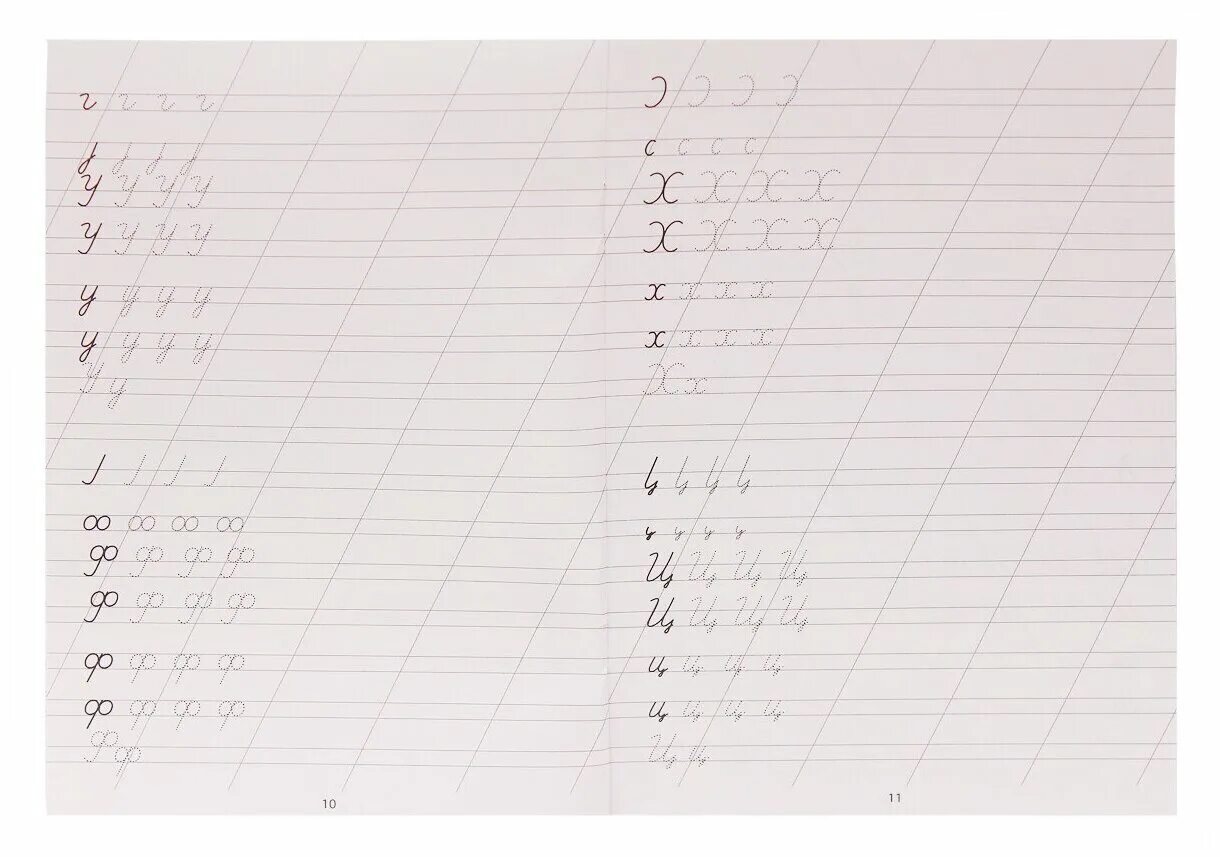 У У У У
У У У У
у у у у
у у у у
У у
Ф Ф Ф Ф
Ф Ф Ф Ф
ф ф ф ф
ф ф ф ф
Ф ф
10
с с с с
Х Х Х Х
Х Х Х Х
х х х х
х х х х
Х х
Ц Ц Ц Ц
Ц Ц Ц Ц
ц ц ц ц
ц ц ц ц
Ц ц
11